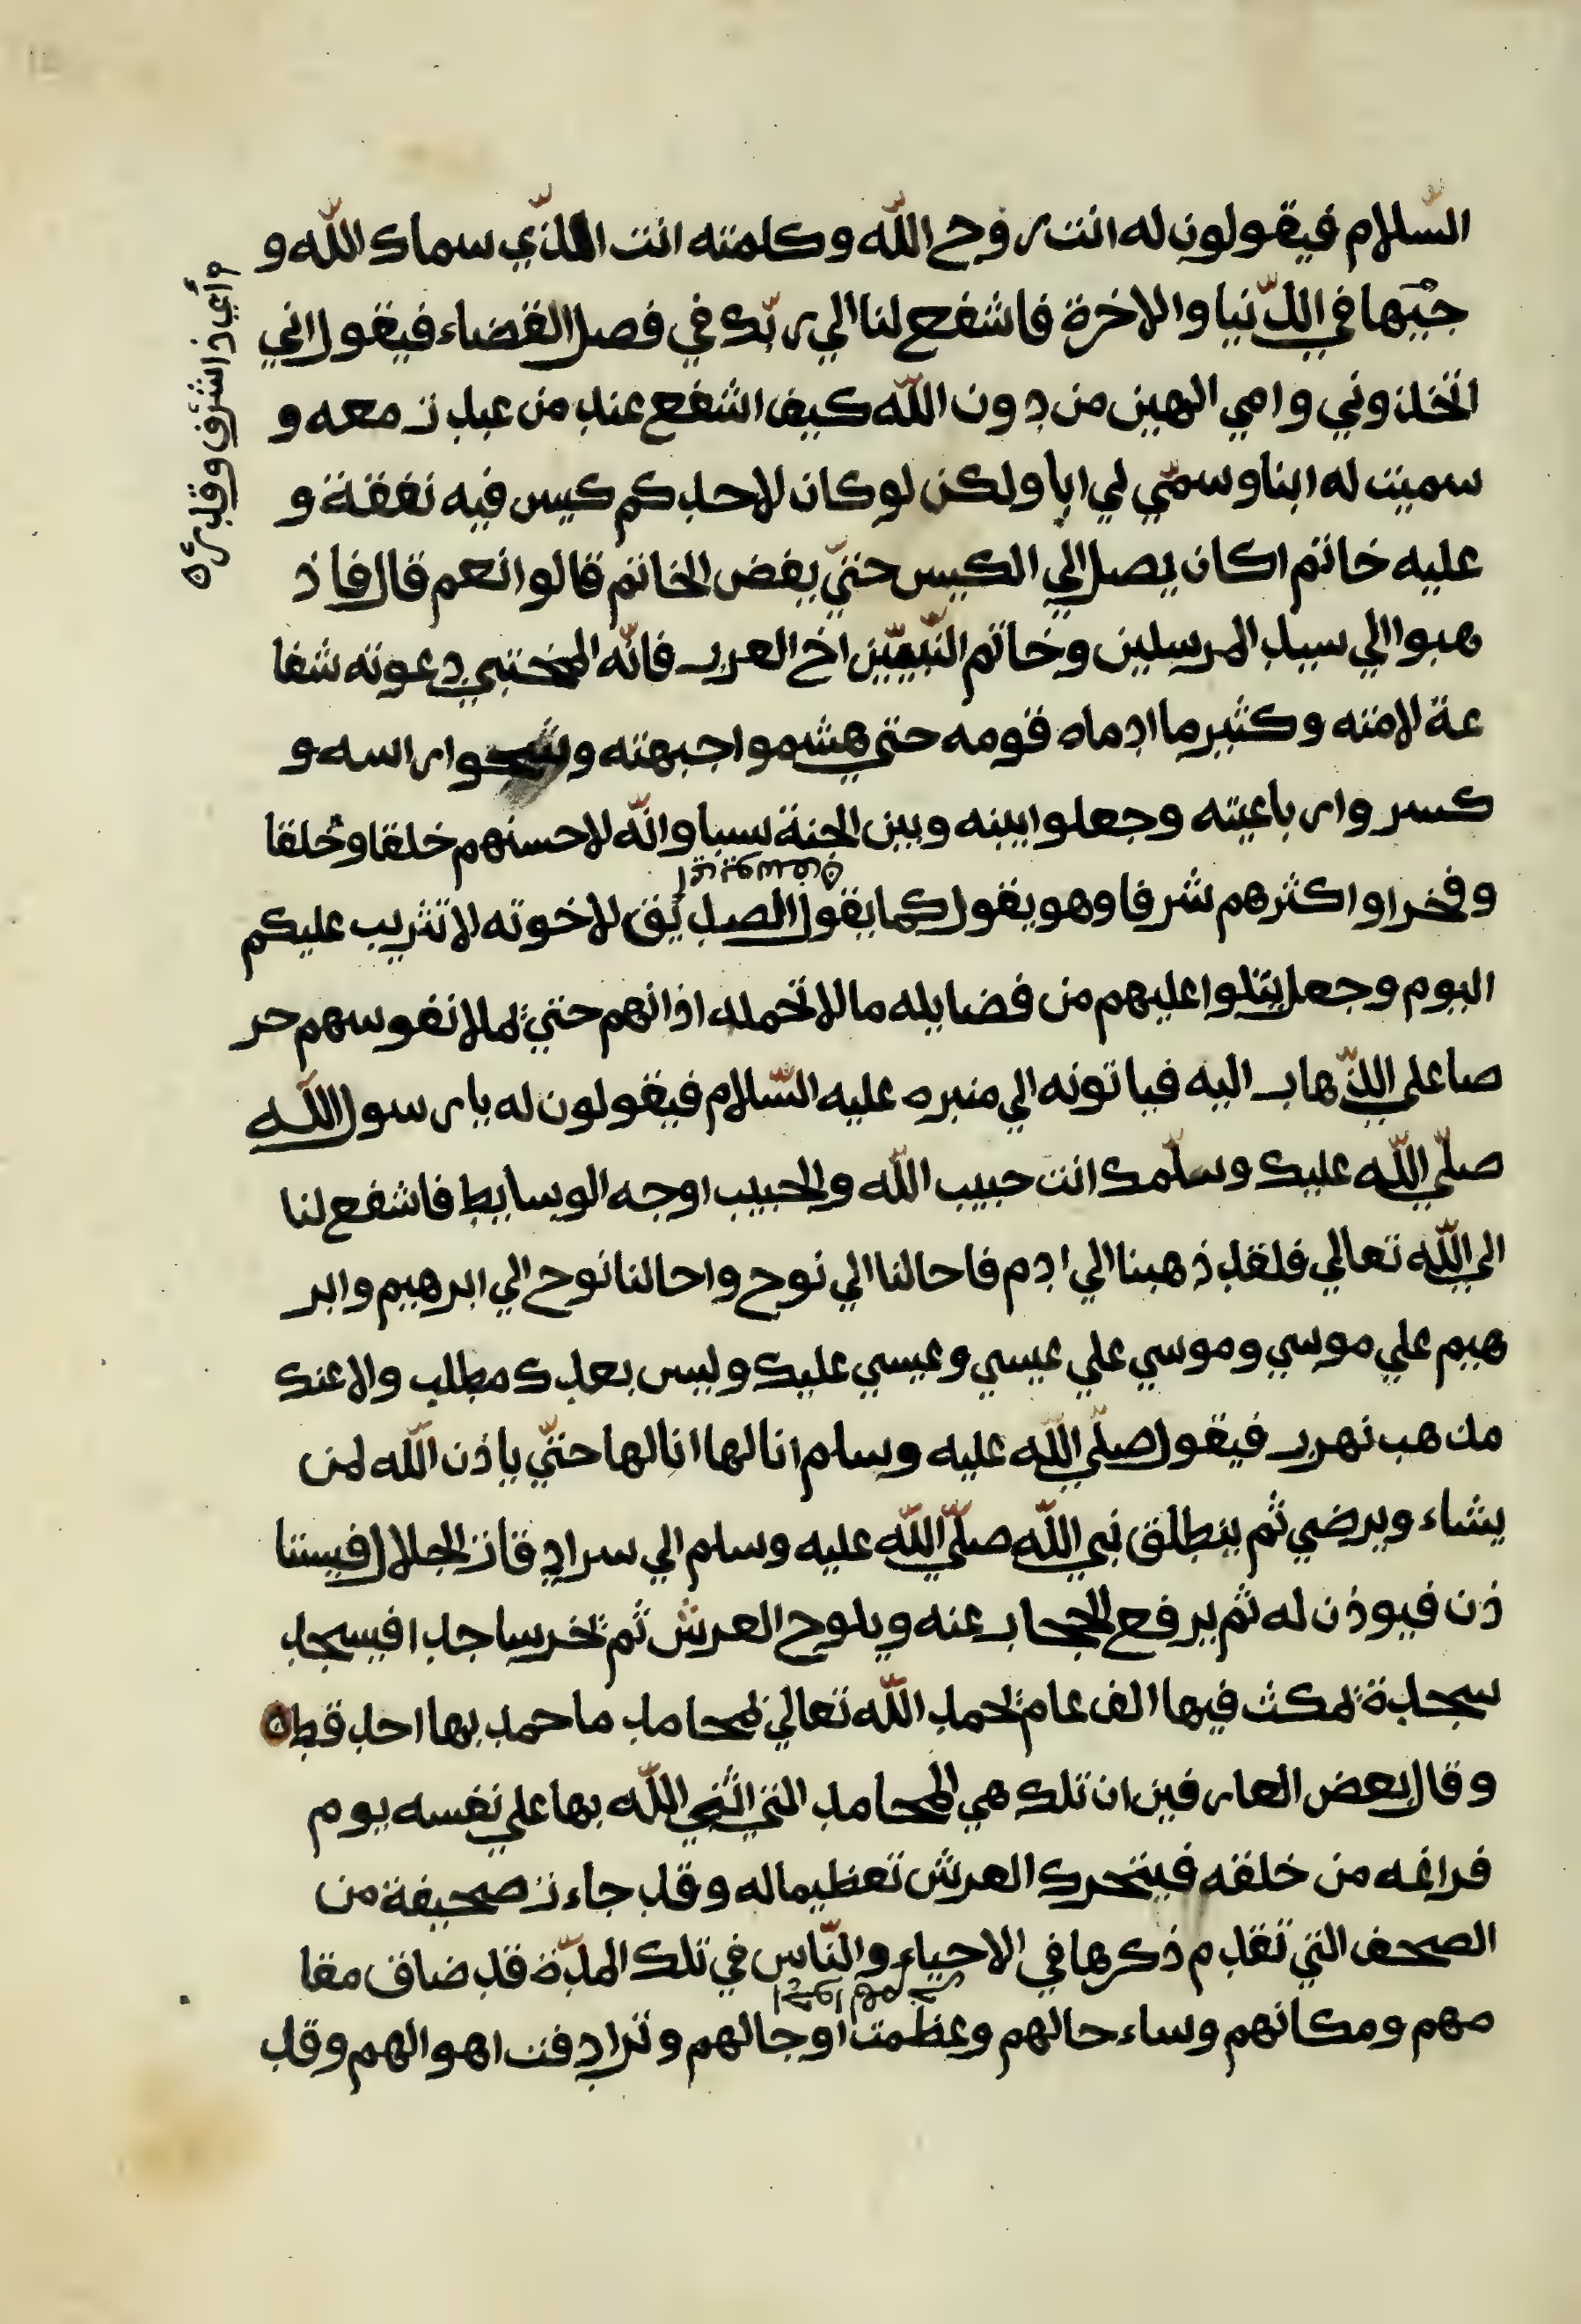 السّلام فيقولون له انت روح اللّه وكلمته انت الذّي سماك اللّه و
جيها في الدّنيا والاخرة فاشفع لنا الي ربّك في فصل القضاء فيقول اني
اتخذوني وامي الهين من دون اللّه كيف اشفع عند من عبدت معه و
سميت له ابنا وسمّي لي ابا ولكن لو كان لاحدكم كيس فيه نفقة و
عليه خاتم اكان يصل الي الكيس حتيّ يفض الخاتم قالوا نعم قال فاذ
هبوا الي سيد المرسلين وخاتم النّبيّين اخ العرب فانّه المختبي دعوته شفا
عة لامته وكثير ما ادماه قومه حتي هشموا جبهته وشجوا راسه و
كسروا رباعيته وجعلوا بينه وبين الجنة سببا وانّه لاحسنهم خلقا وخلقا
وفخرا واكثرهم شرفا وهو يقول كما يقول الصديّق لاخوته لا تثريب عليكم
اليوم وجعل يتلوا عليهم من فضايله ما لا تحمله اذانهم حتي تملا نفوسهم حر
صا علي الذّهاب اليه فياتونه الي منبره عليه السّلام فيقولون له يا رسول اللّه
صلّي اللّه عليك وسلّمك انت حبيب اللّه والحبيب اوجه الوسايط فاشفع لنا
الي اللّه تعالي فلقد ذهبنا الي ادم فاحالنا الي نوح واحالنا نوح الي ابرهيم وابر
هيم علي موسي وموسي علي عيسي وعيسي عليك وليس بعدك مطلب ولا عنك
مذهب نهرب فيقول صلّي اللّه عليه وسلم انا لها انا لها حتيّ ياذن اللّه لمن
يشاء ويرضي ثم ينطلق نبي اللّه صلّي اللّه عليه وسلم الي سرادقات الجلال فيستا
ذن فيوذن له ثم يرفع الحجاب عنه ويلوح العرش ثم يخر ساجدا فيسجد
سجدة يمكث فيها الف عام يحمد اللّه تعالي بمحامد ما حمد بها احد قط ه
وقال بعض العارفين ان تلك هي المحامد التي اثني اللّه بها علي نفسه يوم
فراغه من خلقه فيتحرك العرش تعظيما له وقد جاءت صحيفة من
الصحف التي تقدم ذكرها في الاحياء والنّاس في تلك المدّة قد ضاق مقا
مهم ومكانهم وساء حالهم وعظمت اوجالهم وترادفت اهوالهم وقد
اي ذا شرف وقدر ه